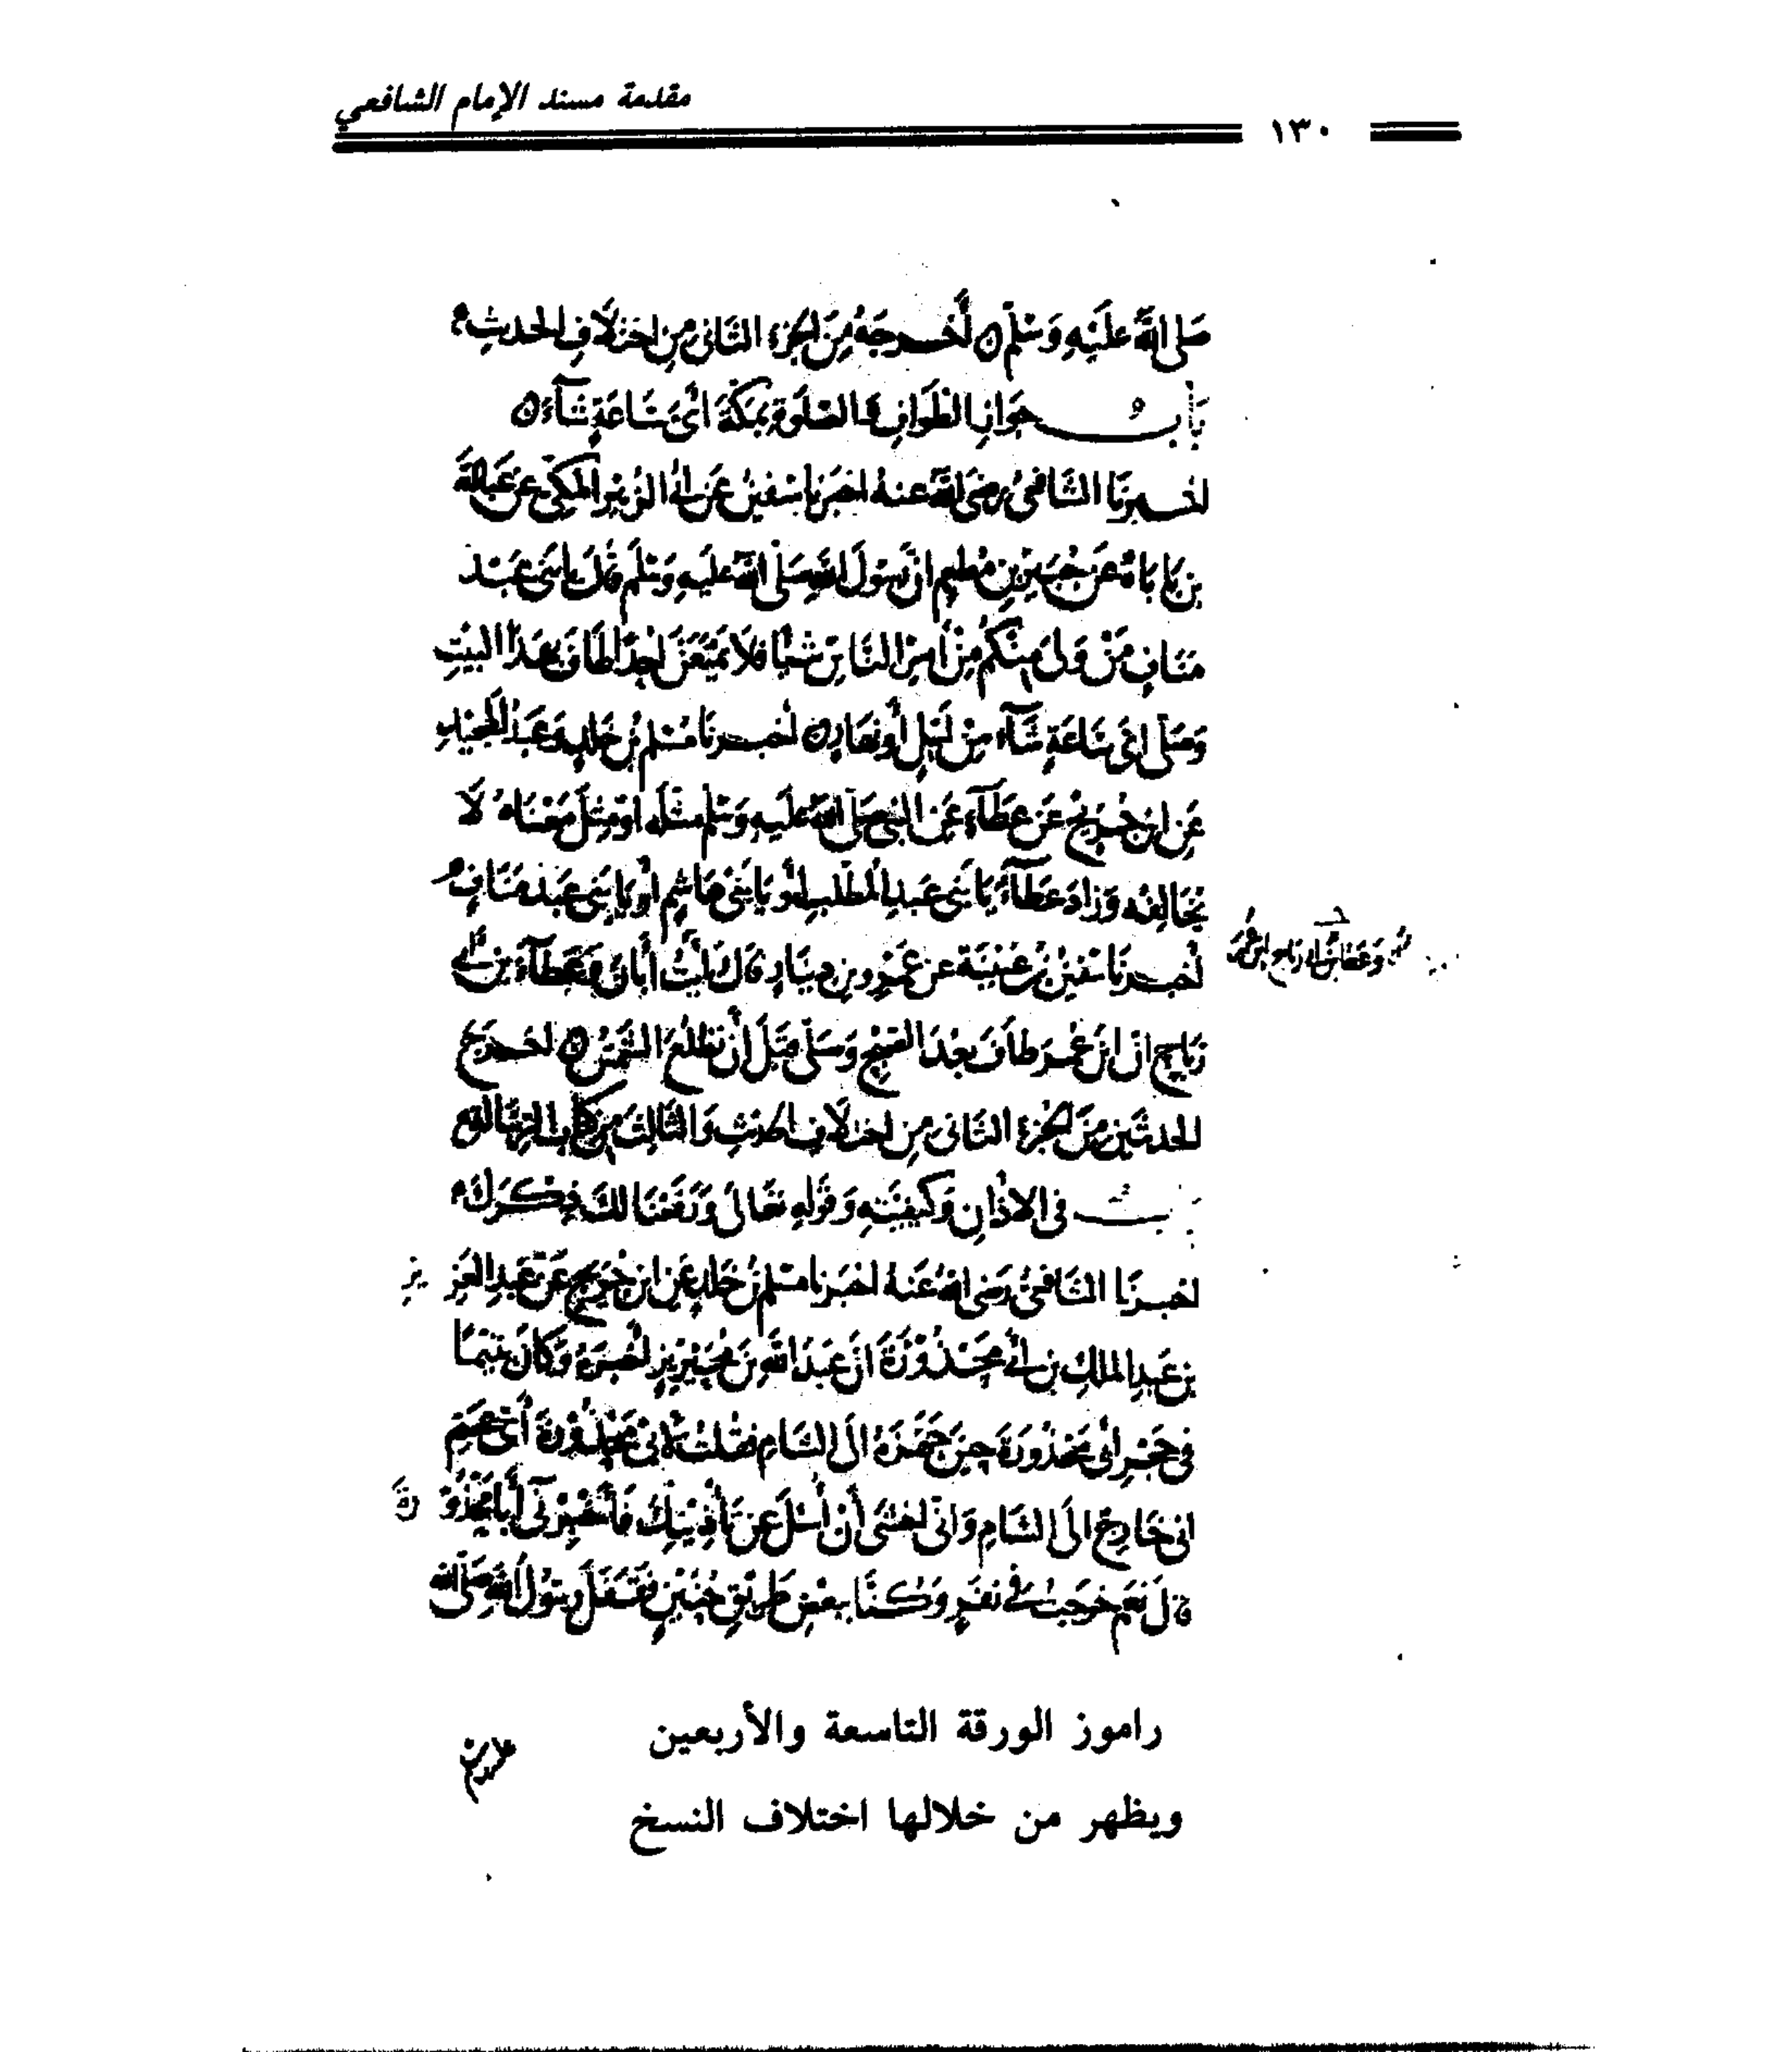 مقدمة مسند الإمام الشافعي
١٣٠
صَلى اللهُ عَلَيْهِ وَسَلم أَخرجَهُ مِنَ الجزء الثانى مِن اختلَافِ الحديثِ
بَابُ جَوَازِ الطَّوَافِ وَالصَّلَوةِ بمَكَّةَ ائَّ سَاعَةٍ شَآءَ
اخبرنَا الشافعىُّ رضىَ اللهُ عنهُ اخبَرَنا سفينُ عَن ابى الزبَيْر المكىِّ عن عَبداللهِ
بن بَابَاهُ عَن جُبَيْرِ بنِ مُطعِم انَّ رَسُولَ اللهِ صَلى اللهُ عليهِ وَسَلم قالَ يابَنى عَبد
مَنافٍ مَنْ وَلىَ مِنكُم مِنْ أَمرِ النَّاسِ شيئًا فلَا يَمْنَعَنَّ احدًا طَافَ بهذا البيتِ
وَصَلى اىَّ سَاعَةٍ شَآءَ مِنْ لَيلٍ أونهَارٍ اخبرنَا مُسْلم بن خَالدٍ وَعَبدُالمجيدِ
عَن ابن جُرَيجٍ عَن عَطَآءٍ عَن النبى صَلى اللهُ عَليهِ وَسَلم مثلَه اوْ مثلَ مَعْنَاهُ لَا
يخَالِفُه وَزادَ عَطآءٌ يَا بَنى عَبدِالمطَّلبِ أوْ يَابَنى هَاشِم أوْ يَابَنى عَبد مَنَافٍ
أخبرنَا سُفينُ بن عُيَيْنَةَ عن عَمرو بنِ دينَارٍ قالَ رَأيْتُ أنا وَعَطآءُ بن أبى
وعطا بن ابى رباح ابن عمر
رَبَاحٍ انَّ ابنَ عُمَرَ طَافَ بعْدَ الصُّبْحِ وَصَلى قبْلَ أنْ تطلعَ الشَّمْسُ اخرَجَ
الحديثَين مِنَ الجزء الثانى مِن اختلَاف الحديثِ وَالثَّالِثَ مِن كتاب الرسَالة
بَابٌ فى الاذَانِ وَكيفيَّتهِ وَقولهِ تعَالى وَرَفَعْنَا لكَ ذكرَكَ
اخبرنَا الشافعىُّ رَضىَ اللهُ عَنهُ اخبَرنا مسْلمُ بن خَالدٍ عَن ابن جُرَيجٍ عَن عَبدِ العَزيز
بن عَبدِ الملكِ بن أبى مَحذُوْرَةَ انَّ عَبدَاللهِ بنَ مُحَيرِيزٍ أخبَرَهُ وَكَانَ يَتيمًا
فى حَجْرِ أبى مَحذُورَةَ حِينَ جَهَّزَهُ الَى الشَّامِ فقلتُ لأبى مَحذُوْرَةَ أىْ عَم
انى خَارجٌ الَى الشَّامِ وَانى اخشَى أنْ أُسْئَلَ عَن تَأذِيْنكَ فَأخبِرْنى أبَا مَحذُوْرةَ
قالَ نَعَم خرَجتُ فى نفَرٍ وَكُنَّا ببعْضِ طَرِيقِ حُنَيْنٍ فَقَفَلَ رسُولُ اللهِ صَلى اللهُ
راموز الورقة التاسعة والأربعين
ويظهر من خلالها اختلاف النسخ